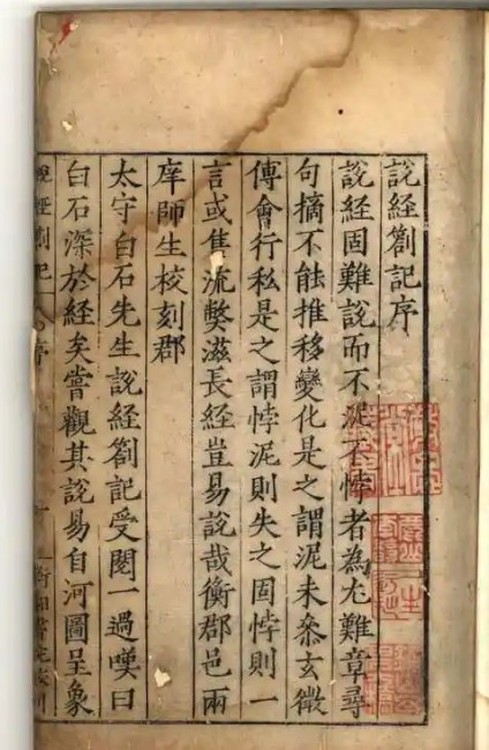 說經劄記序
說經固難說而不泥不悖者為尤難章尋
句摘不能推移變化是之謂泥未叅玄微
傅會行私是之謂悖泥則失之固悖則一
言或售流獘滋長經豈易說哉衡郡邑兩
庠師生校刻郡
太守白石先生說經劄記受閱一過嘆曰
白石深於經矣嘗觀其說易自河圖呈象
說經劄記